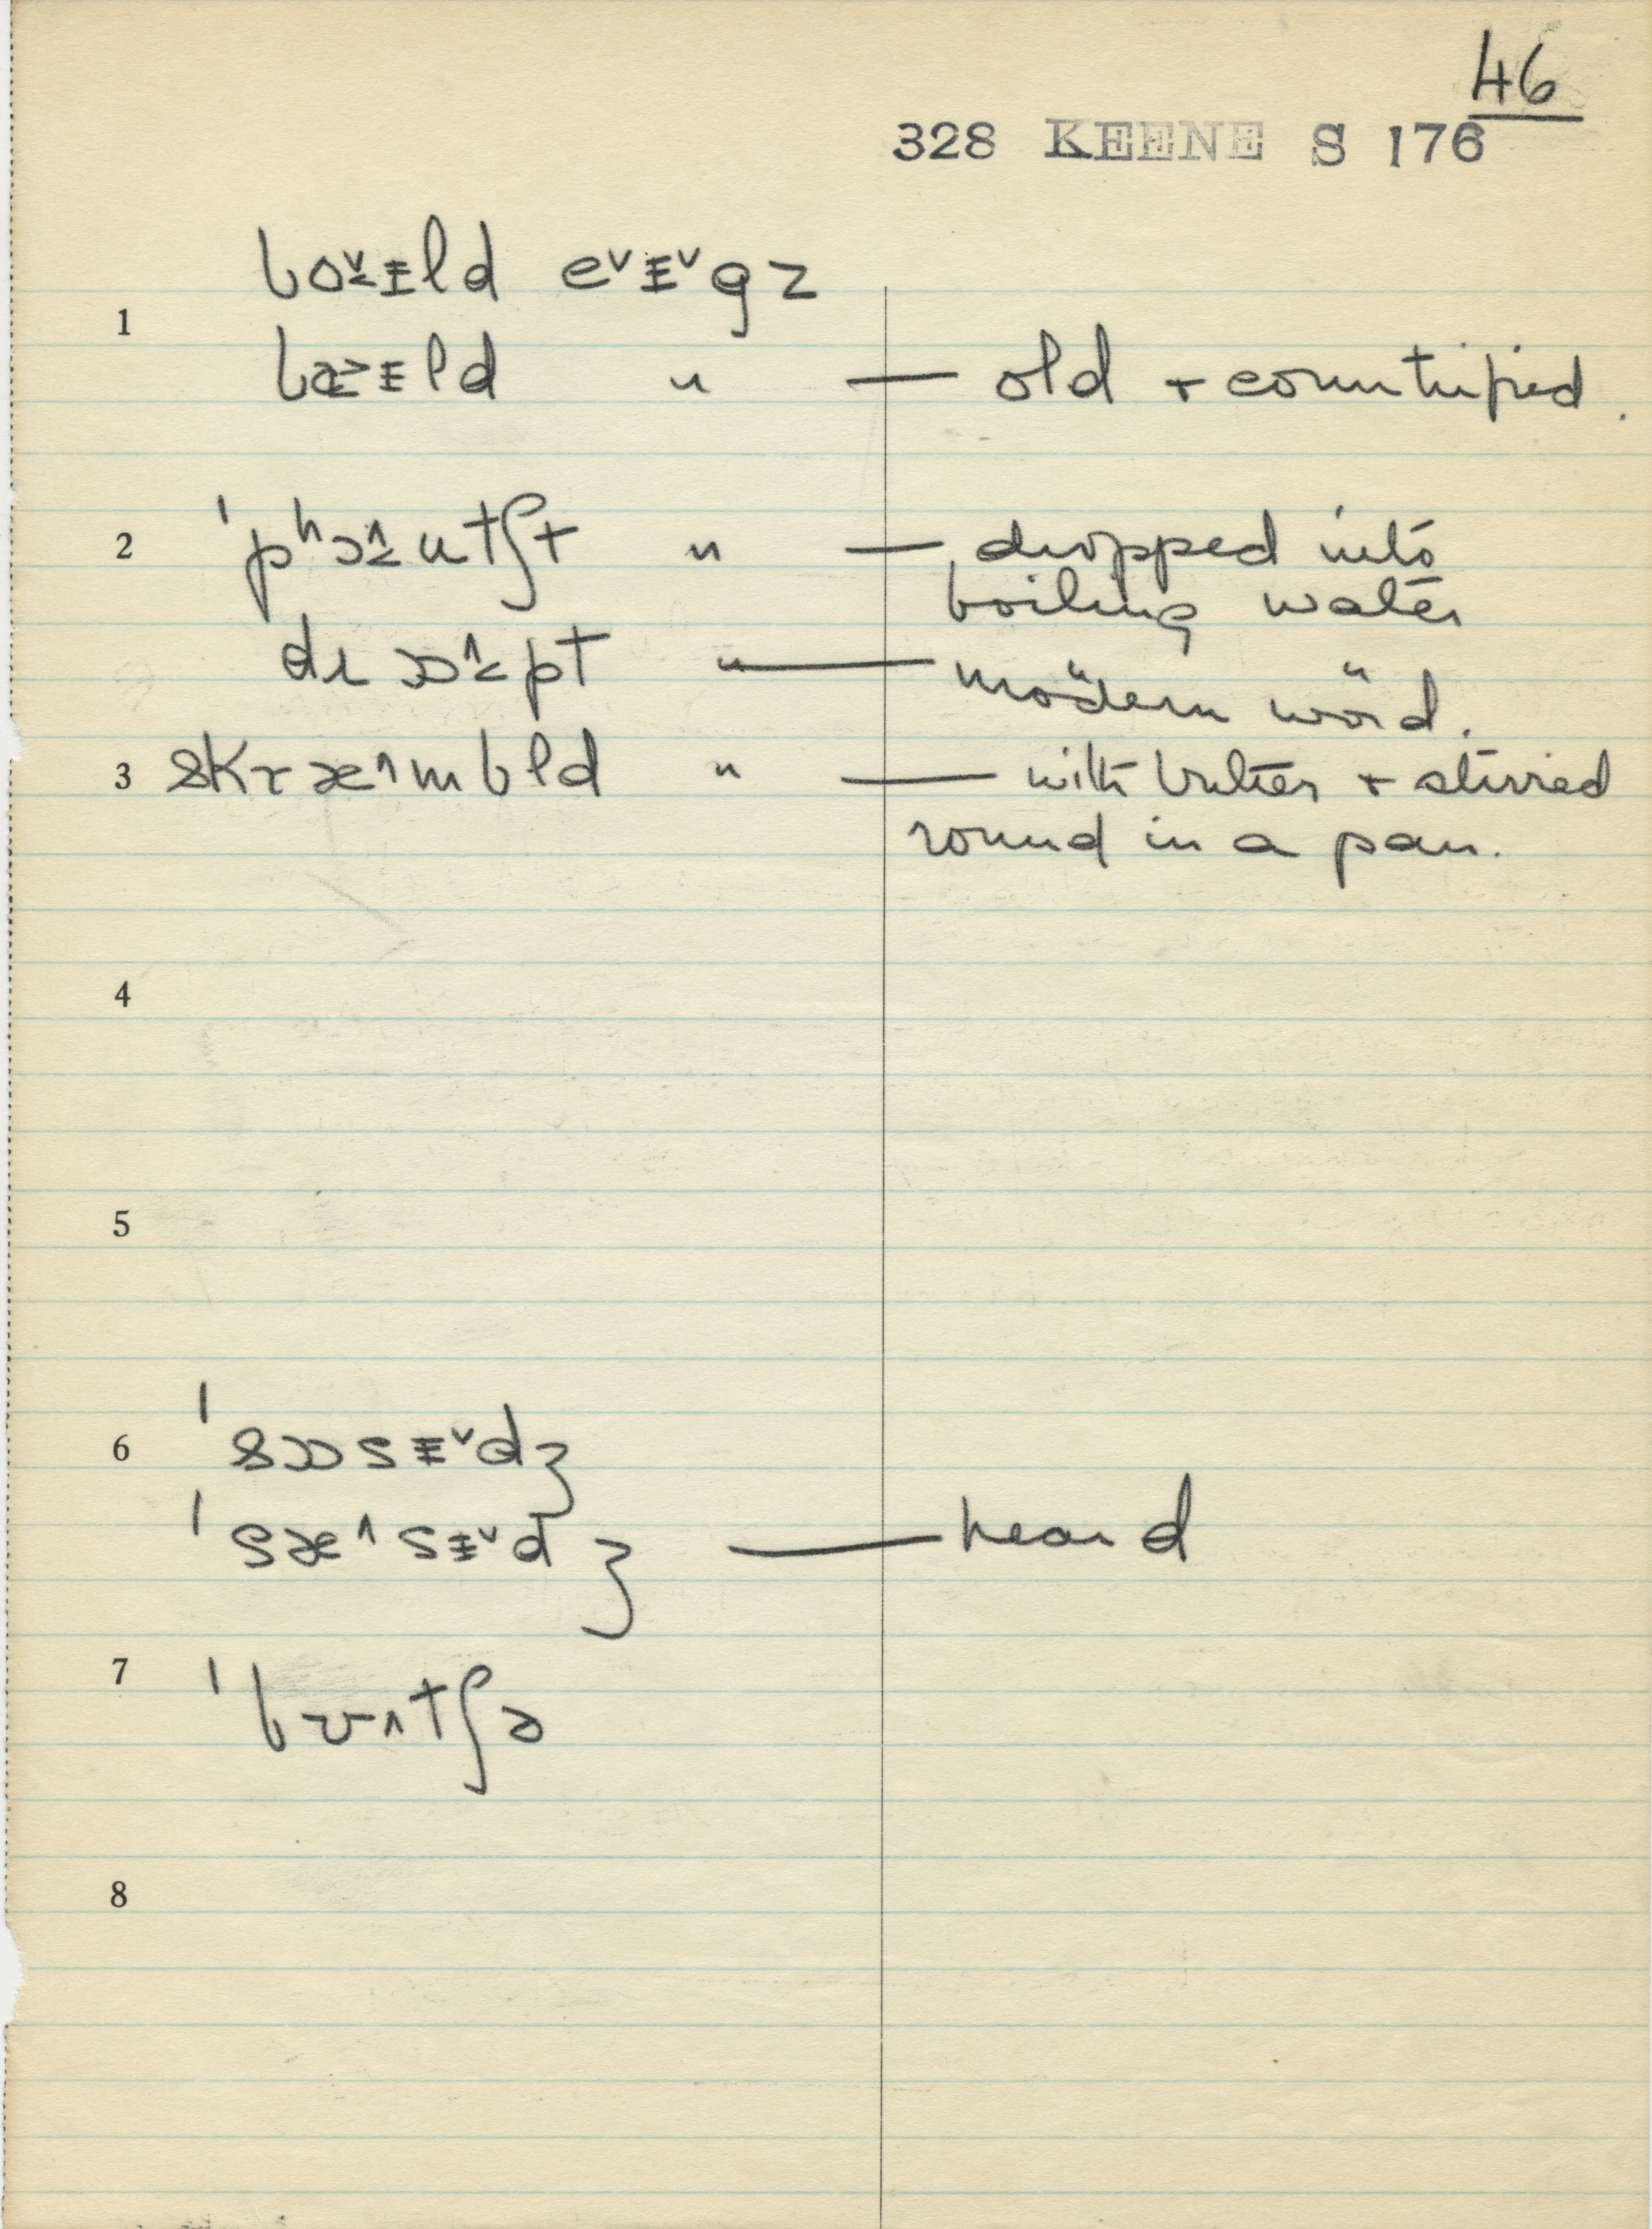 46
328 KEENE S 176
1
boᵛ̱ɨld eᵛɨᵛgz
ld " — old + countrified.
2 ˈpʰɔ^̱ntʃt " — dropped into
boiling water
drɒ^̱pt " — "modern word".
3 skræ^mbld " — with butter + stirred
round in a pan.
4
5
6 ˈsɒsɨᵛdʒ
ˈsæ^sɨᵛdʒ — heard
7 ˈbʊ^tʃə
8